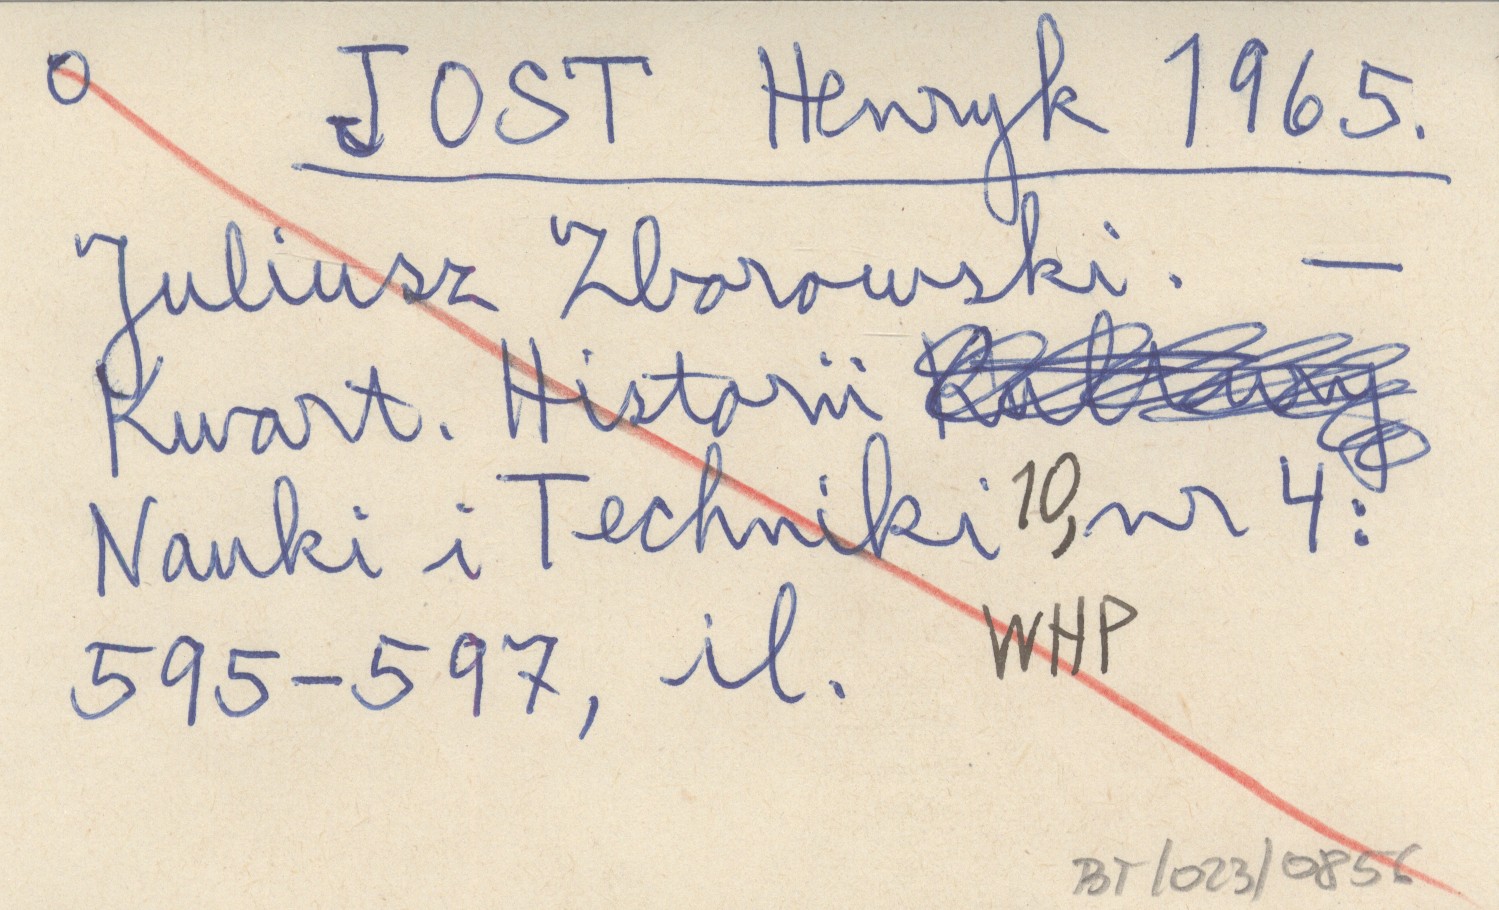 O JOST Henryk 1965.
Juliusz Zborowski. —
Kwart. Historii Kultury
Nauki i Techniki 10, nr 4:
595-597, il. WHP
BT/023/0856